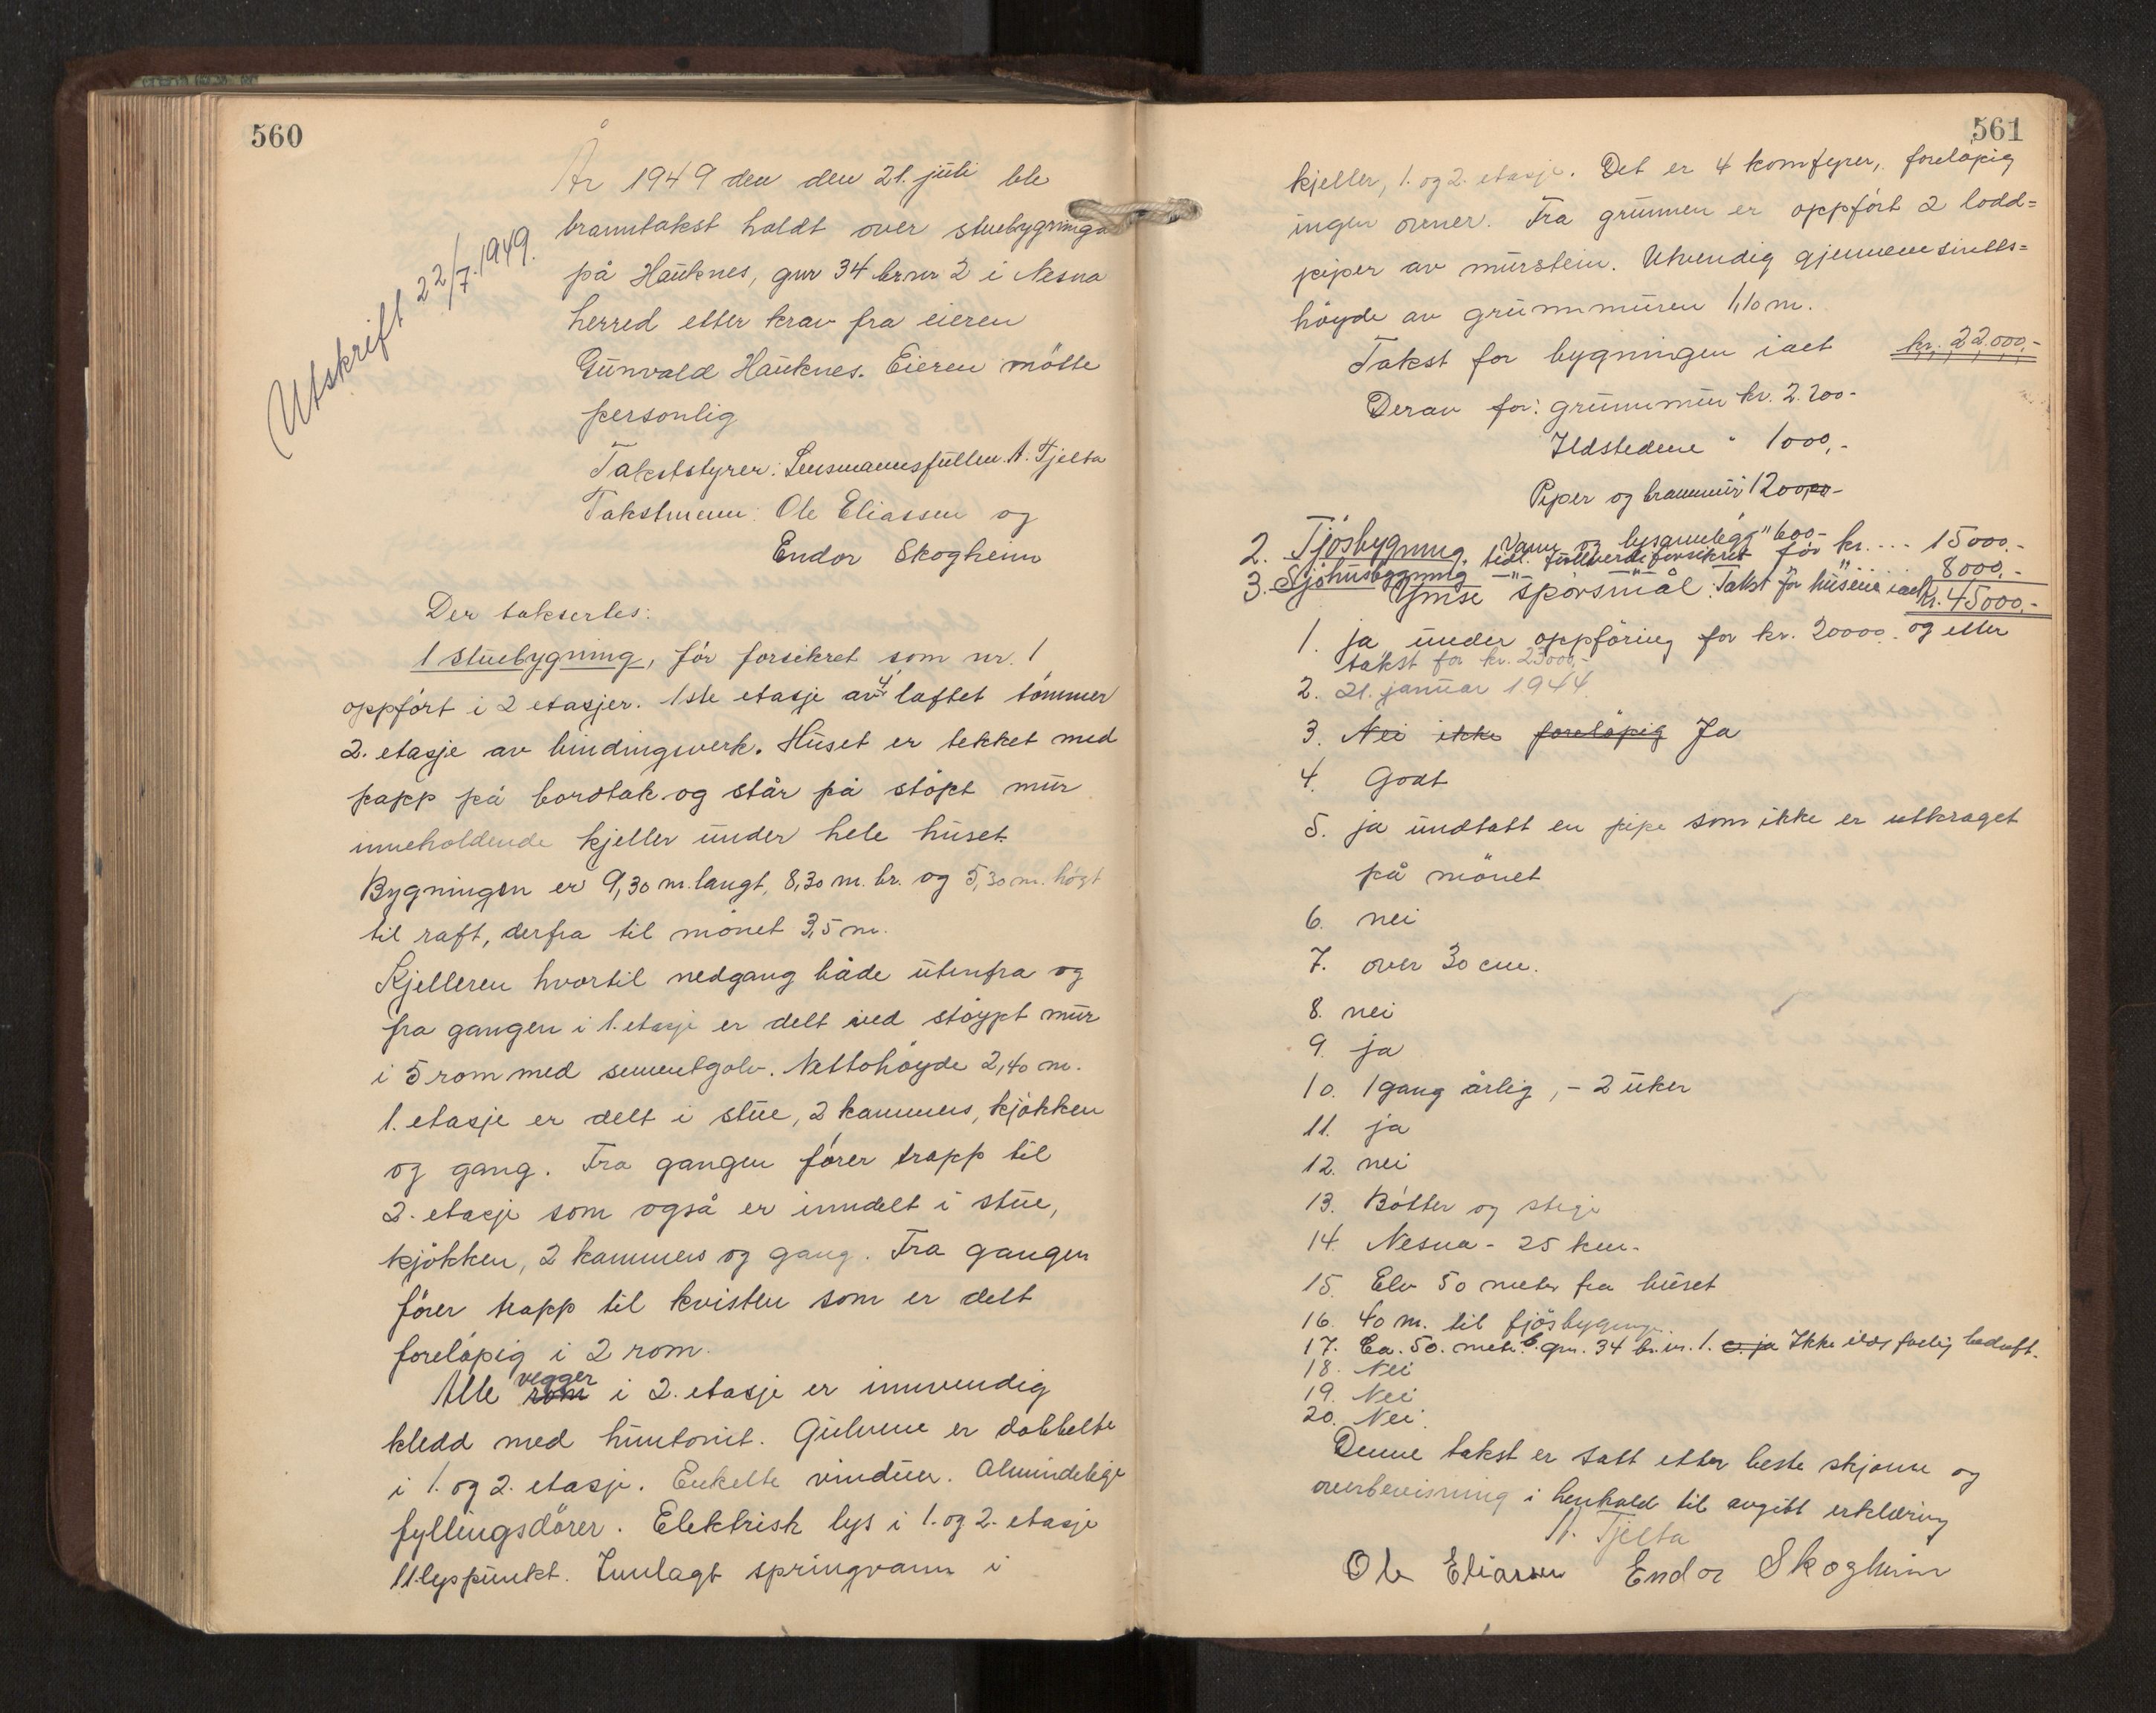 560
Utskrift 22/7.1949.
År 1949 den den 21. juli ble
branntakst holdt over stuebygninga
på Hauknes, gnr 34 brnr 2 i Nesna
herred etter krav fra eieren
Gunvald Hauknes. Eieren møtte
personlig
Takststyrer: Lensmannsfullm. A. Tjelta
Takstmenn: Ole Eliassen og
Endor Skogheim
Der taksertes:
1 Stuebygning, før forsikret som nr. 1
oppført i 2 etasjer. 1ste etasje av 4" laftet tømmer
2. etasje av bindingsverk. Huset er tekket med
papp på bordtak og står på støpt mur
inneholdende kjeller under hele huset.
Bygningen er 9,30 m. langt, 8,30 m. br. og 5,30 m. høgt
til raft, derfra til mønet 3,5 m.
Kjelleren hvortil nedgang både utenfra og
fra gangen i 1. etasje er delt ved støypt mur
i 5 rom med sementgolv. Nettohøyde 2,40 m.
1. etasje er delt i stue, 2 kammers, kjøkken
og gang. Fra gangen fører trapp til
2. etasje som også er inndelt i stue,
kjøkken, 2 kammers og gang. Fra gangen
fører trapp til kvisten som er delt
foreløpig i 2 rom.
Alle rom vegger i 2. etasje er innvendig
kledd med huntonit. Gulvene er dobbelte
i 1. og 2. etasje. Enkelte vinduer. Almindelige
fyllingsdører. Elektrisk lys i 1. og 2. etasje
11 lyspunkt. Innlagt springvann i
561
kjeller, 1. og 2. etasje. Det er 4 komfyrer, foreløpig
ingen ovner. Fra grunnen er oppført 2 lodd=
piper av murstein. Utvendig gjennemsnitts=
høyde av grunnmuren 1,10 m.
Takst for bygningen ialt kr. 22.000,-
Derav for: grunnmur kr. 2.200-
Ildstedene " 1000,-
Piper og brannmur 1200,-
Vann og lysanlegg " 600,-
2. Fjøsbygning, tidl. fullverdiforsikret for kr. ... 15000,-
3. Sjøhusbygning —"— " " " 8000,-
Ymse spørsmål. Takst for husene ialt kr. 45000,-
1. ja under oppføring for kr. 20000. og etter
takst for kr. 23000,-
2. 21. januar 1944.
3. Nei ikke foreløpig Ja
4. Godt
5. ja undtatt en pipe som ikke er utkraget
på mønet
6. nei
7. over 30 cm.
8. nei
9. ja
10. 1 gang årlig, - 2 uker
11. ja
12. nei
13. Bøtter og stige
14. Nesna - 25 km.
15. Elv 50 meter fra huset
16. 40 m. til fjøsbygning.
17. Ca. 50. meter gnr. 34 br.nr. 1. Ikke ildsfarlig bedrift.
18. Nei
19. Nei
20. Nei.
Denne takst er satt etter beste skjønn og
overbevisning i henhold til avgitt erklæring
A. Tjelta
Ole Eliassen Endor Skogheim